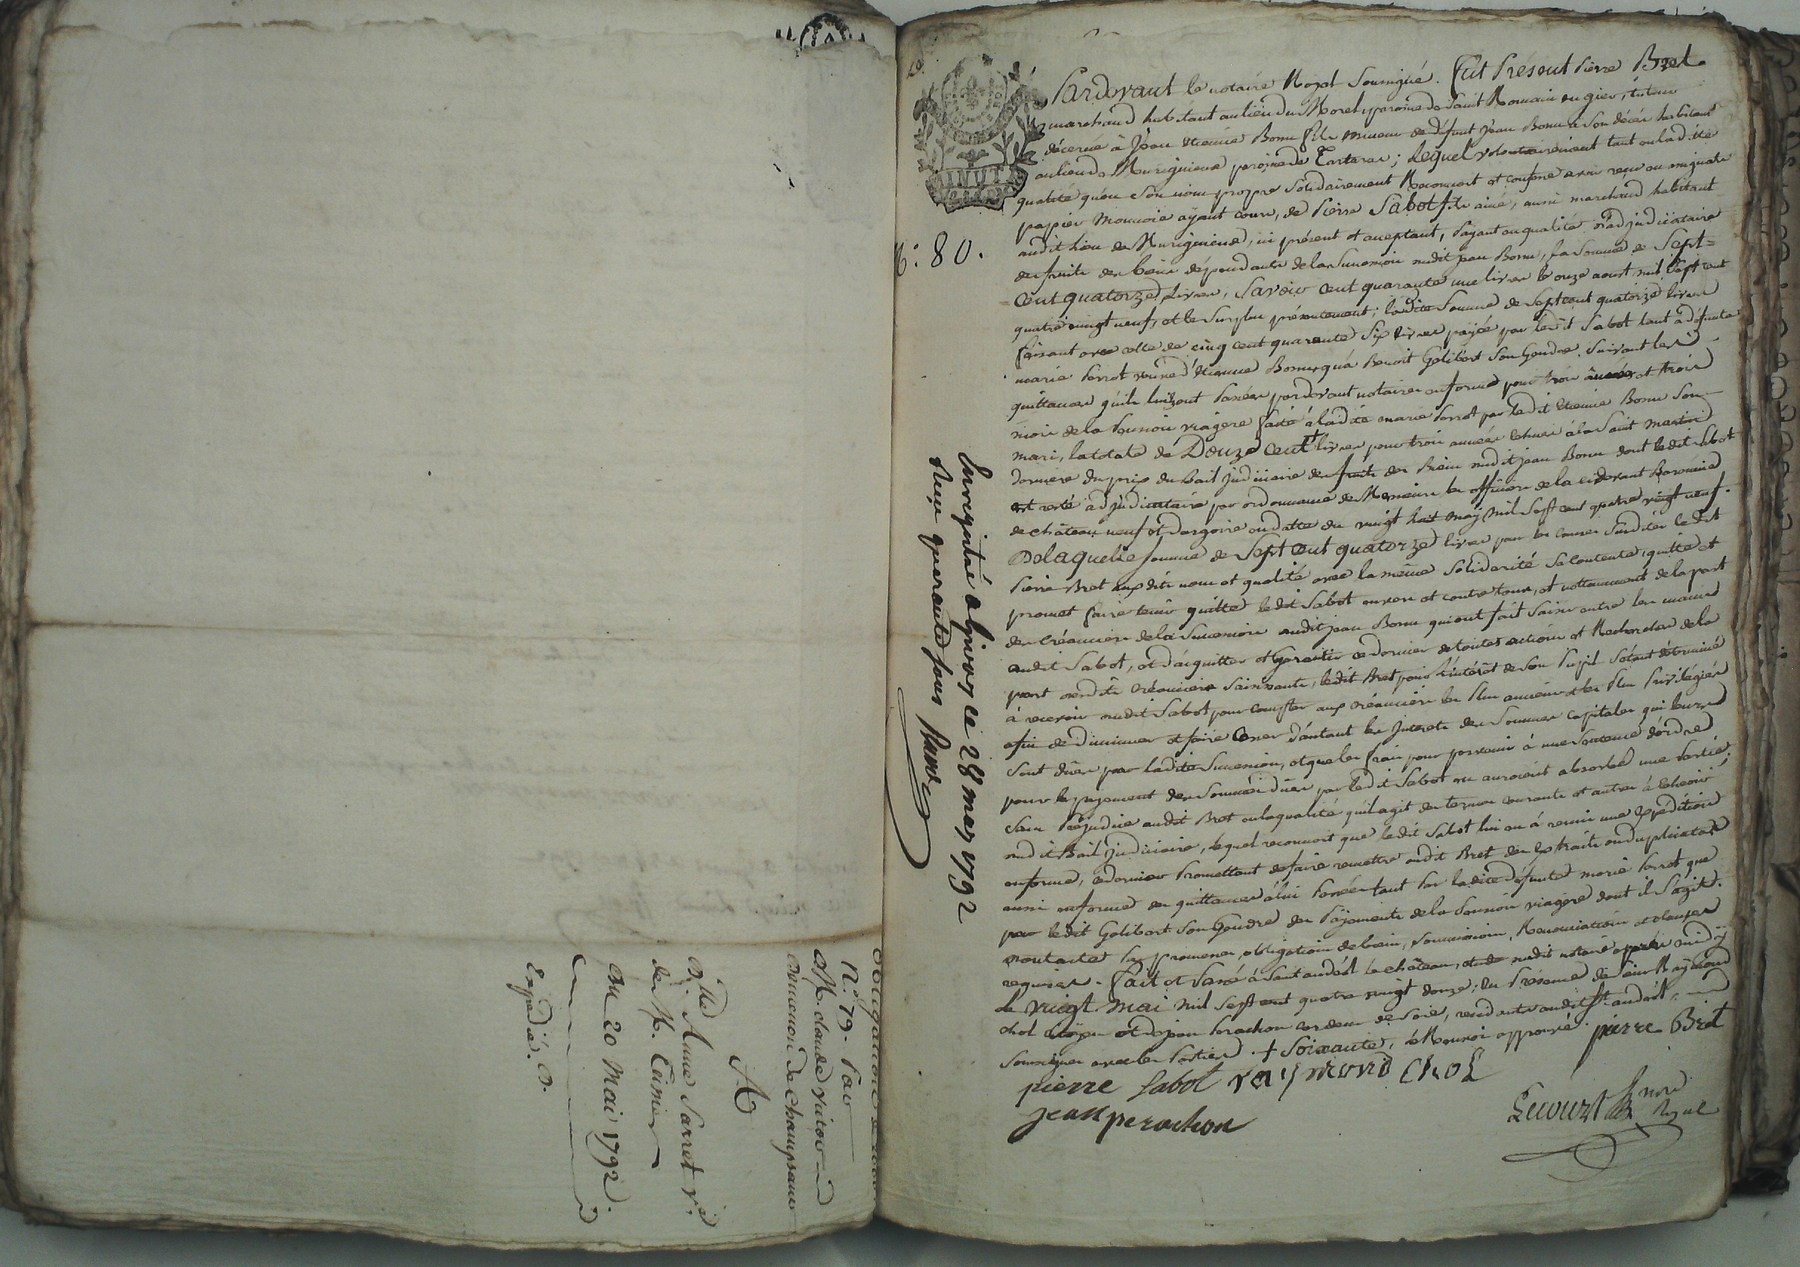 Obligation
N.° 79. Par
Sr. claude victor
A
Dlle Anne Sarret v.e
de Sr. Tixier
Du 20 Mai 1792.
Expédié.
N.° 80.
Enregistré a Givors ce 28 may 1792
Reçu quarante sous
Pardevant le notaire Royal soussigné. Fut Présent Pierre Bret
marchand habitant au lieu du Morel, paroisse de Saint Romain en gier, tuteur
décerné à Jean Etienne Bonu fils mineur de défunt Jean Bonu à son décès habitant
au lieu de Murigneux paroisse de Tartaras; Lequel volontairement tant en ladite
qualité qu'en son nom propre solidairement Reconnoit et confesse avoir reçu en
papier Monnoie ayant cours, de Pierre Sabot fils ainé, aussi marchand habitant
audit lieu de Murigneux, ici présent et acceptant, Payant en qualité d'adjudicataire
des fruits des biens dépendants de la succession dudit jean Bonu, la somme de Sept-
cent quatorze Livres, savoir cent quarante une livres le onze aoust mil sept cent
quatre vingt neuf, et le surplus présentement; ladite somme de sept cent quatorze livres
faisant avec celle de cinq cent quarante six livres payée par ledit Sabot tant à défunte
marie Perrot veuve d'Etienne Bonu, qu'à Benoit Golibert son Gendre, suivant les
quittances qu'ils lui ont passées pardevant notaire en forme pour trois années et trois
mois de la Pension viagere faite à ladite marie Perrot par ledit Etienne Bonu son
mari, la totale de Douze cent + livres pour trois années échues à la Saint martin
derniere du prix du bail judiciaire des fruits des biens dudit jean Bonu dont ledit Sabot
est resté adjudicataire par ordonnance de Messieurs les officiers de la cidevant Baronnie
de château neuf et dargoire en datte du vingt huit may mil sept cent quatre vingt neuf.
De laquelle somme de Sept cent quatorze livres pour les causes susdites ledit
Pierre Bret auxdits nom et qualité avec la même solidarité se contente, quitte et
promet faire tenir quitte ledit Sabot envers et contre tous, et nottamment de la part
des créanciers de la succession dudit jean Bonu qui ont fait saisir entre les mains
dudit Sabot, et d'acquitter et Garantir ce dernier de toutes actions et Recherches de la
part desdits créanciers saisissants, ledit Bret pour l'intérêt de son Pupil s'étant déterminé
à recevoir dudit Sabot pour compter aux créanciers les plus anciens et les plus Privilégiés
afin de diminuer et faire cesser d'autant les Interets des sommes capitales qui leurs
sont dües par ladite succession, et que les frais pour parvenir à une sentence d'ordre
pour le payement des sommes dües par ledit Sabot en auroient absorbé une Partie,
sans Préjudice audit Bret en la qualité qu'il agit des termes courants et autres à échoir
dudit Bail judiciaire, lequel reconnoit que ledit Sabot lui en à remis une expédition
en forme, ce dernier Promettant de faire remettre audit Bret des extraits ou duplicatas
aussi en forme des quittances à lui Passées tant Par ladite défunte marie Perrot que
par ledit Golibert son Gendre des Payements de la Pension viagere dont il s'agit.
requises. Fait et Passé à Saint andéol le château, etude dudit notaire après midi
le vingt mai mil sept cent quatre vingt douze; En Présence de sieur Raymond
chol citoyen et de jean Perachon cordeur de soie, residents audit St. andéol,
soussignés avec les Parties. + soixante, le Renvoi approuvé. pierre Bret
pierre Sabot raymond chol
jean perachon
Lecourt nore Royal